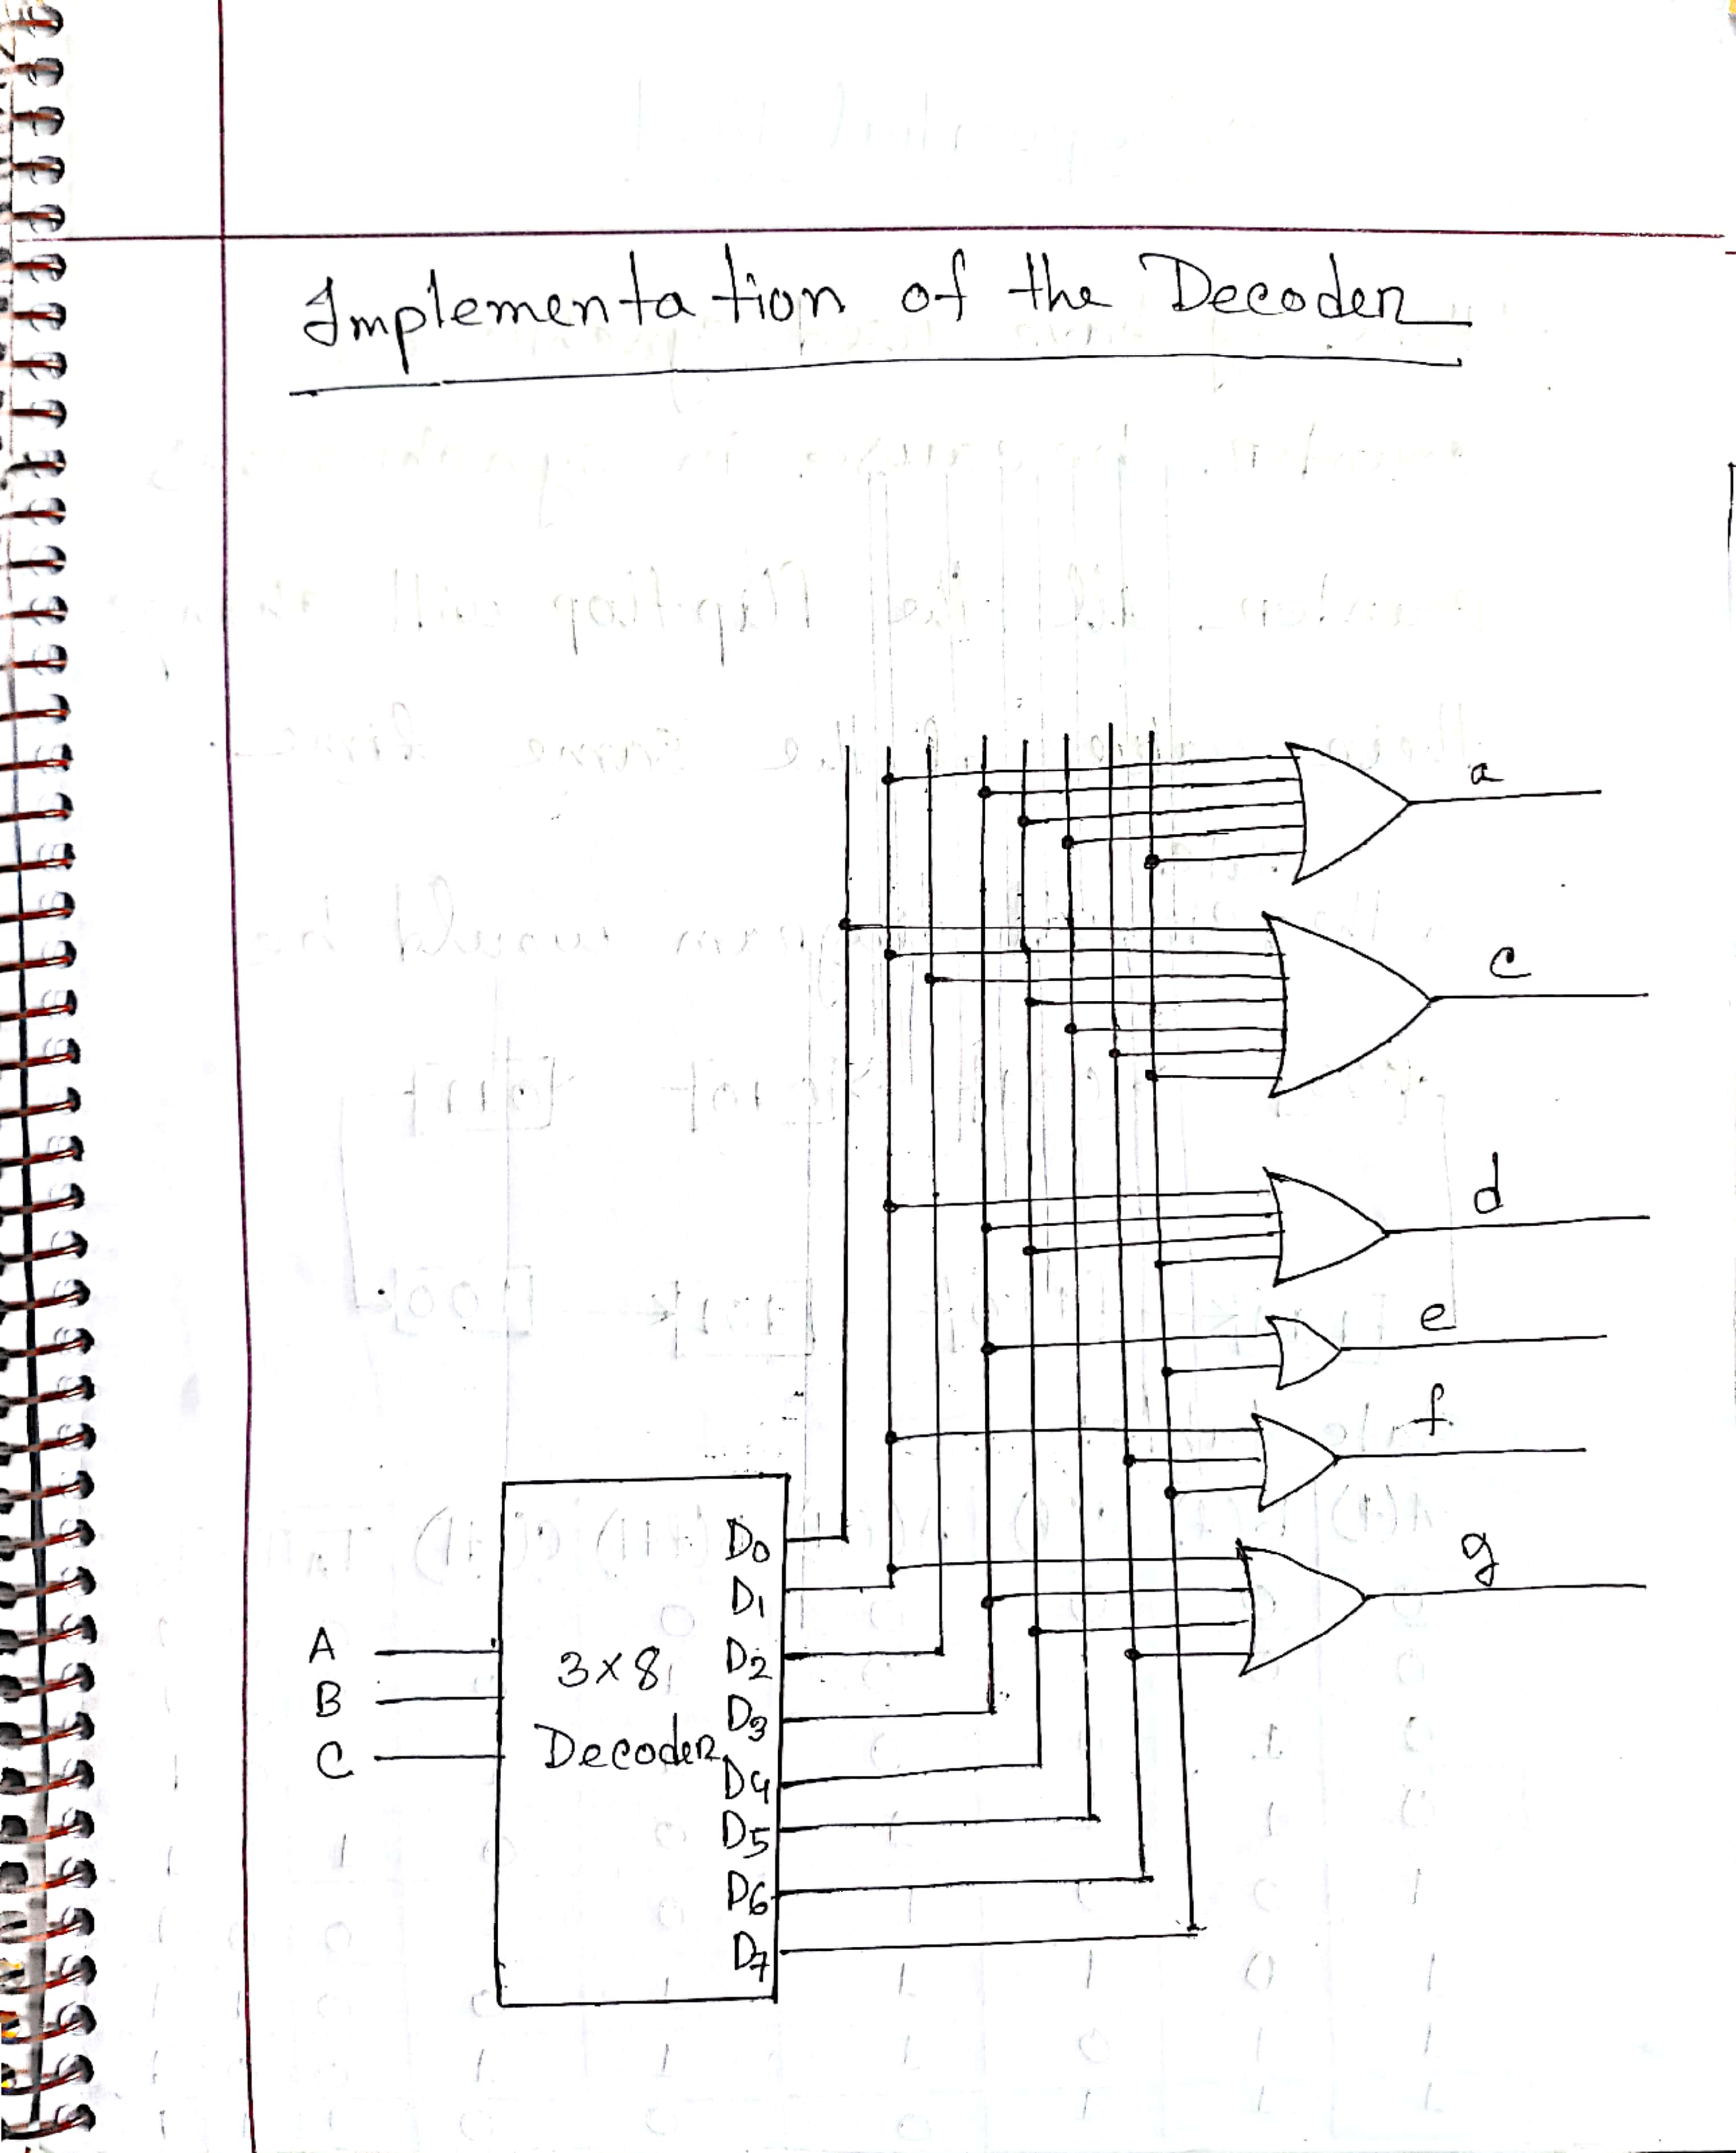 Implementation of the Decoder
a
c
d
e
f
g
A
B
C
3×8
Decoder
D0
D1
D2
D3
D4
D5
D6
D7